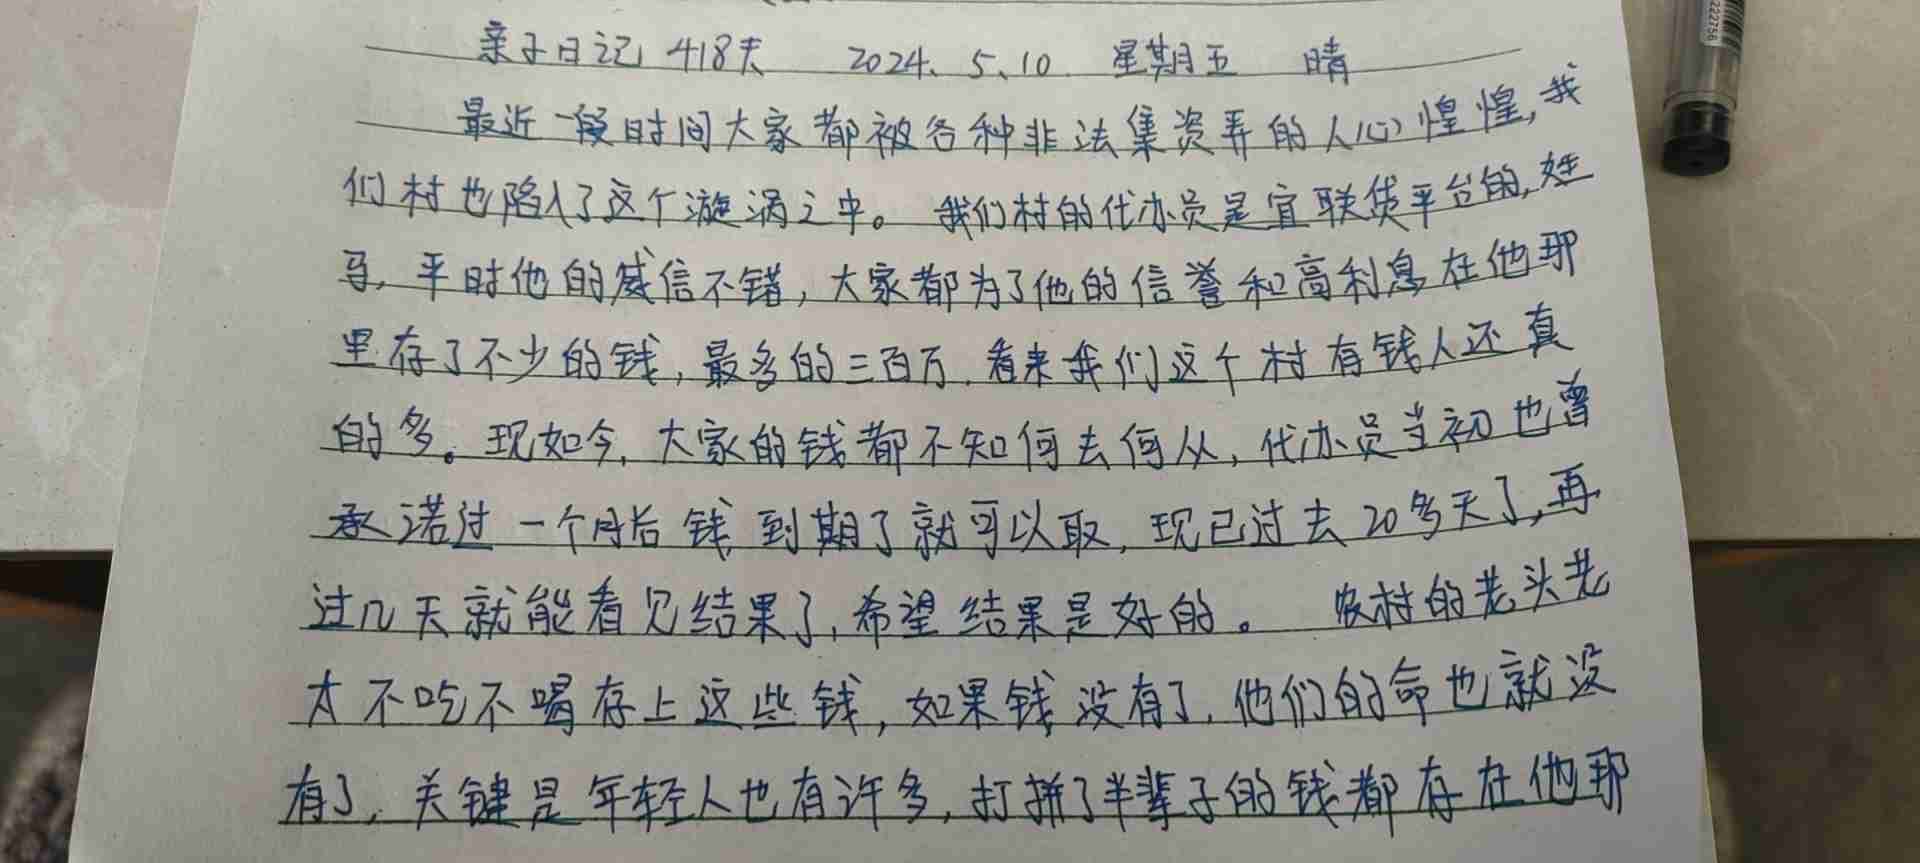 亲子日记 418天 2024、5、10 星期五 晴
最近一段时间大家都被各种非法集资弄的人心惶惶,我
们村也陷入了这个漩涡之中。我们村的代办员是宜联货平台的,姓
马,平时他的威信不错,大家都为了他的信誉和高利息在他那
里存了不少的钱,最多的三百万,看来我们这个村有钱人还真
的多。现如今,大家的钱都不知何去何从,代办员当初也曾
承诺过一个月后钱到期了就可以取,现已过去20多天了,再
过几天就能看见结果了,希望结果是好的。 农村的老头老
太不吃不喝存上这些钱,如果钱没有了,他们的命也就没
有了,关键是年轻人也有许多,打拼了半辈子的钱都存在他那
222756